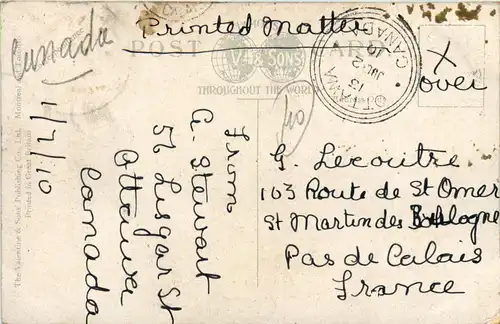 Canada
Printed Matter
POST CARD
V & SONS
THROUGHOUT THE WORLD
CANADA
JUL 2
10
X
over
40
1/7/10
From
A. Stewart
56 Lisgar St
Ottawa
Canada
G. Lecoutre
103 Route de St Omer
St Martin des Boulogne
Pas de Calais
France
The Valentine & Sons' Publishing Co., Ltd. Montreal
Printed in Great Britain